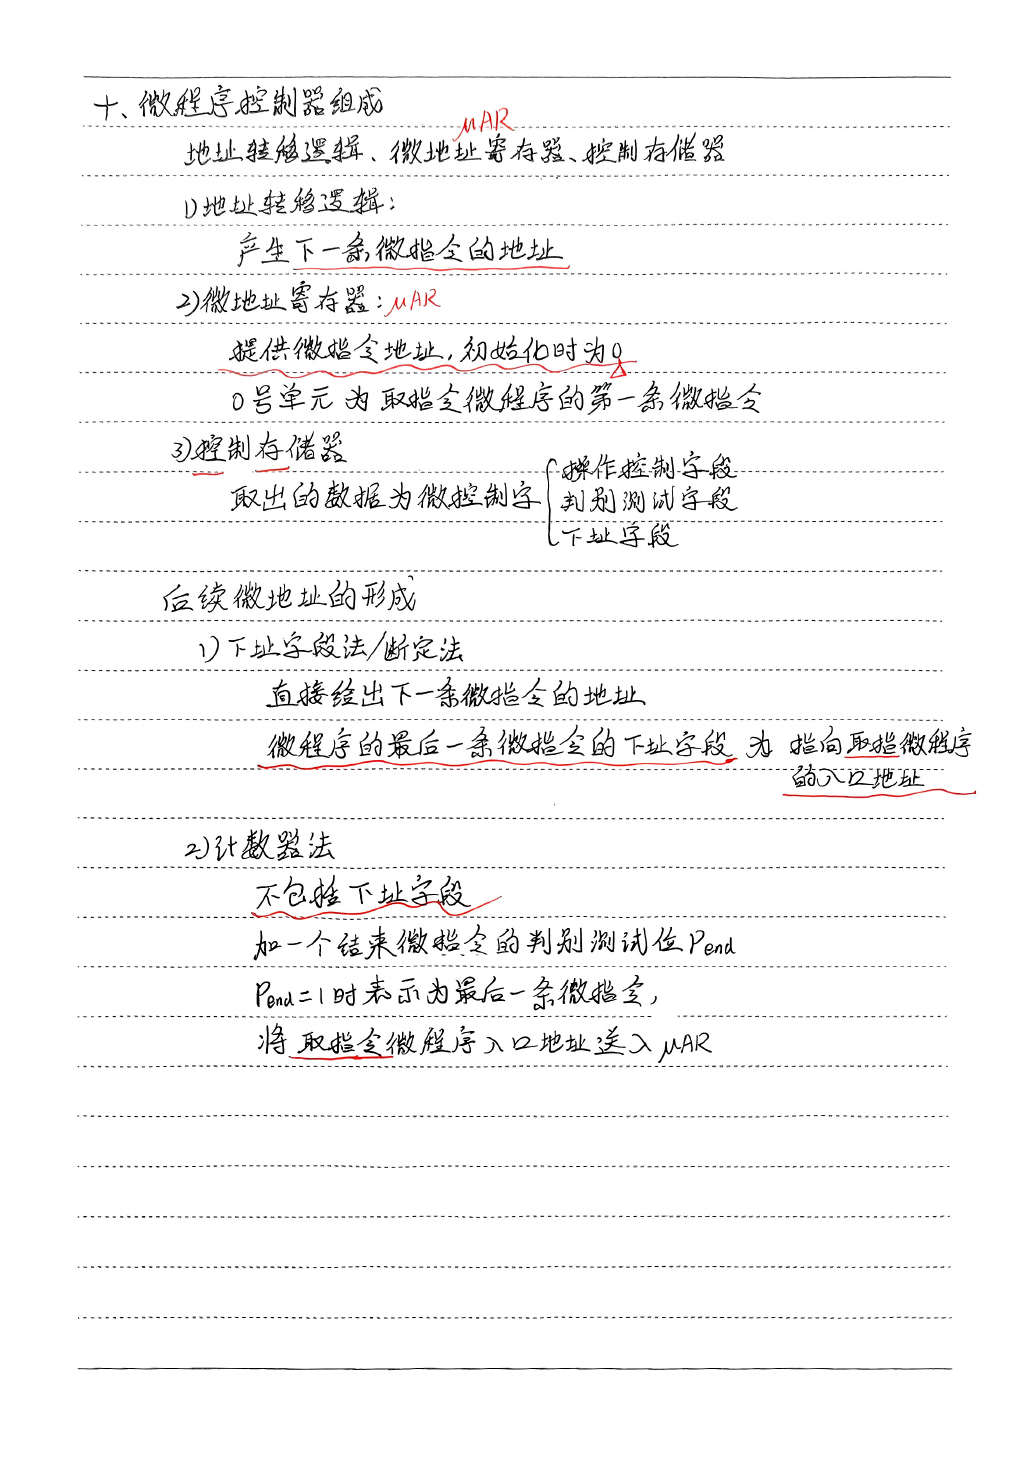 十、微程序控制器组成
μAR
地址转移逻辑、微地址寄存器、控制存储器
1)地址转移逻辑:
产生下一条微指令的地址
2)微地址寄存器:μAR
提供微指令地址,初始化时为0
0号单元为取指令微程序的第一条微指令
3)控制存储器
取出的数据为微控制字
操作控制字段
判别测试字段
下址字段
后续微地址的形成
1)下址字段法/断定法
直接给出下一条微指令的地址
微程序的最后一条微指令的下址字段为指向取指微程序
的入口地址
2)计数器法
不包括下址字段
加一个结束微指令的判别测试位Pend
Pend=1时表示为最后一条微指令,
将取指令微程序入口地址送入μAR